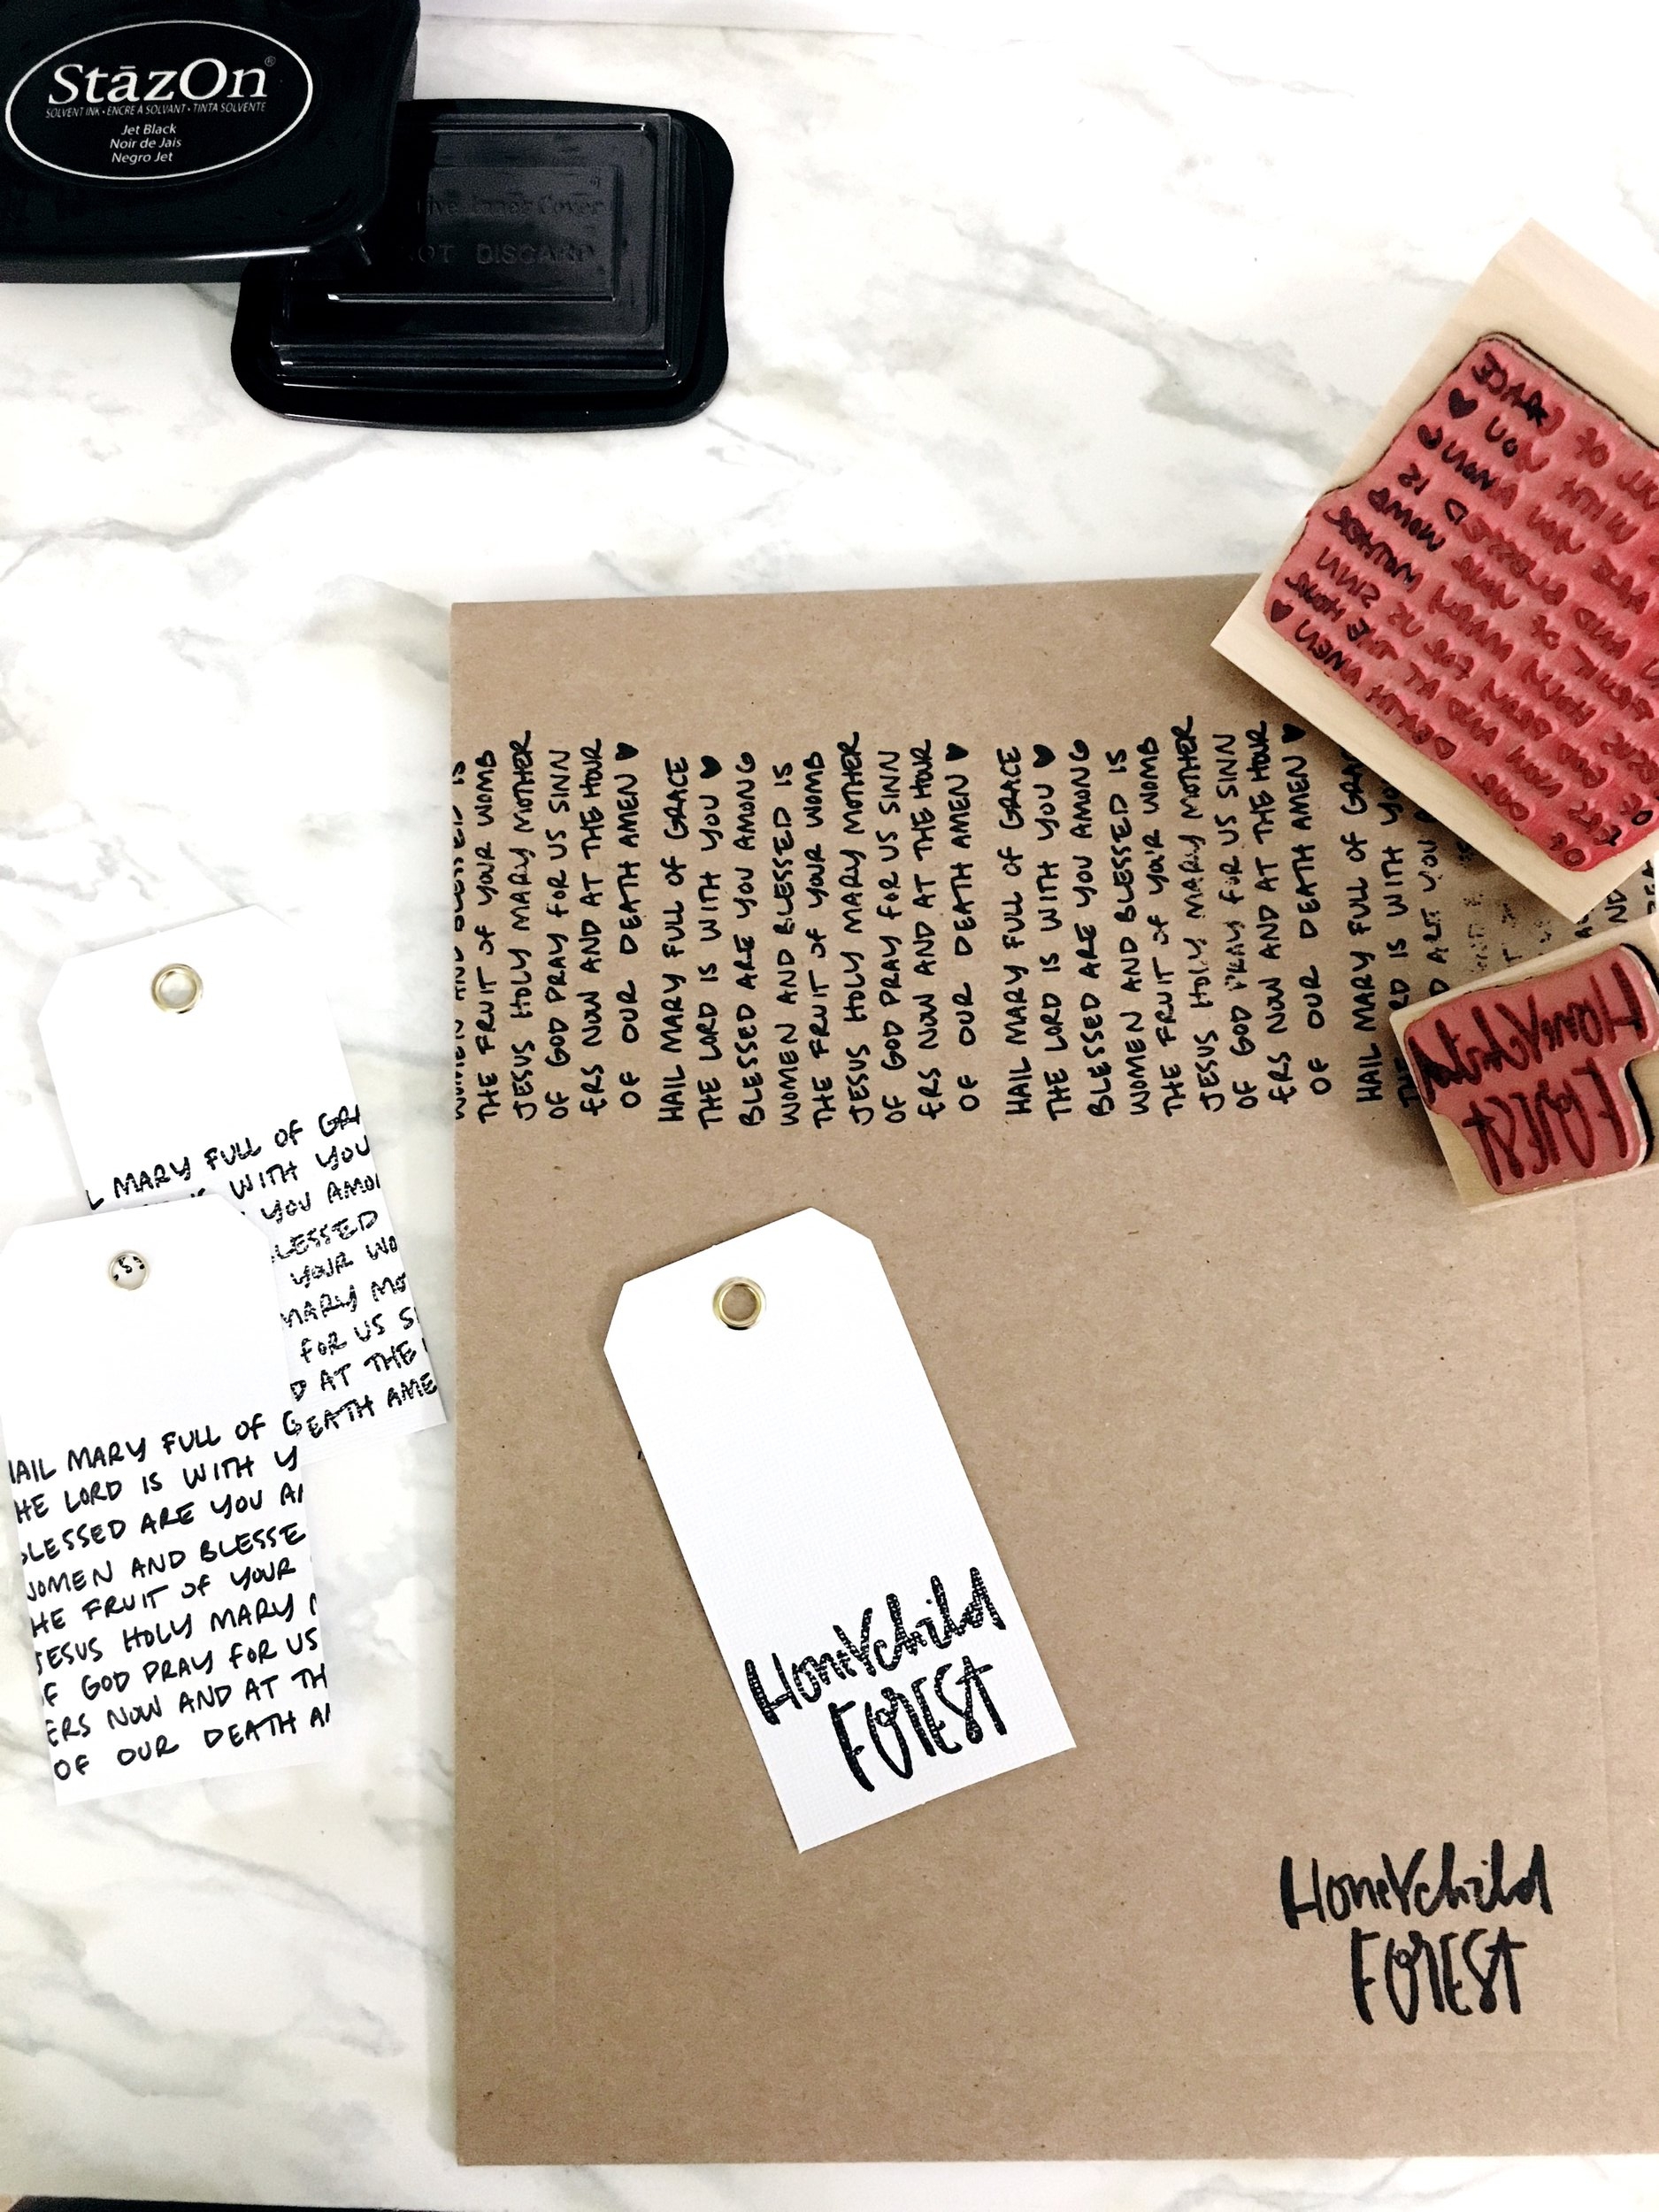 StāzOn®
SOLVENT INK • ENCRE À SOLVANT • TINTA SOLVENTE
Jet Black
Noir de Jais
Negro Jet
Inner Cover
NOT DISCARD
WOMEN AND BLESSED IS
THE FRUIT OF YOUR WOMB
JESUS HOLY MARY MOTHER
OF GOD PRAY FOR US SINN
ERS NOW AND AT THE HOUR
OF OUR DEATH AMEN ♥
HAIL MARY FULL OF GRACE
THE LORD IS WITH YOU ♥
BLESSED ARE YOU AMONG
WOMEN AND BLESSED IS
THE FRUIT OF YOUR WOMB
JESUS HOLY MARY MOTHER
OF GOD PRAY FOR US SINN
ERS NOW AND AT THE HOUR
OF OUR DEATH AMEN ♥
HAIL MARY FULL OF GRACE
THE LORD IS WITH YOU ♥
BLESSED ARE YOU AMONG
WOMEN AND BLESSED IS
THE FRUIT OF YOUR WOMB
JESUS HOLY MARY MOTHER
OF GOD PRAY FOR US SINN
ERS NOW AND AT THE HOUR
OF OUR DEATH AMEN ♥
HAIL MARY FULL OF GRA
RD IS WITH YO
D ARE YOU
HoneYchild
FOREST
L MARY FULL OF GRA
WITH YOU
YOU AMO
LESSED
YOUR WO
MARY MO
FOR US S
D AT THE
EATH AME
AIL MARY FULL OF G
HE LORD IS WITH Y
LESSED ARE YOU A
WOMEN AND BLESSE
HE FRUIT OF YOUR
JESUS HOLY MARY
F GOD PRAY FOR US
ERS NOW AND AT TH
OF OUR DEATH A
HoneYchild
FOREST
HoneYchild
FOREST